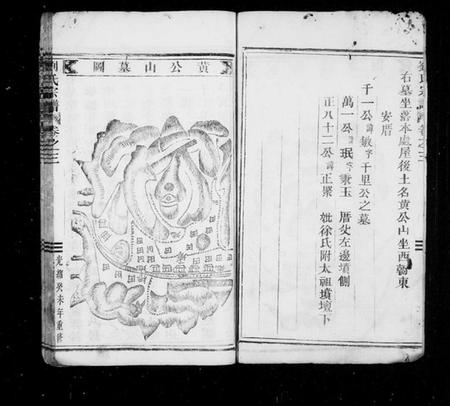 右墓坐落本處屋後土名黃公山坐西朝東
安厝
千一公諱敏字千里公之墓
萬一公諱珉字秉玉 厝父左邊墳側
正八十二公諱正眾 妣徐氏附太祖墳壇下
黃公山墓圖
卷之三
光緒癸未年重修